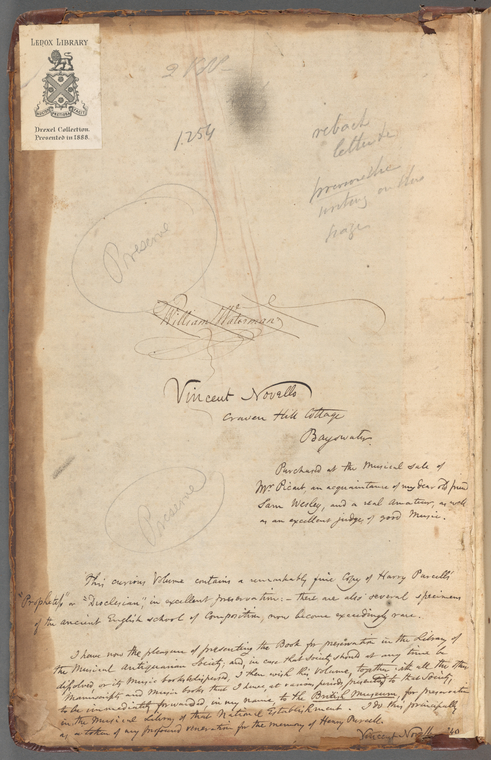 LENOX LIBRARY
Drexel Collection.
Presented in 1888.
1.254
Preserve
reback
letter
preserve the
writing on this
page
William Waterman
Vincent Novello
Craven Hill Cottage
Bayswater.
Purchased at the Musical sale of
Mr. Picart, an acquaintance of my dear old friend
Sam Wesley, and a real Amateur, as well
as an excellent judge, of good Music.
Preserve
This curious Volume contains a remarkably fine Copy of Harry Purcell's
"Prophetess" or "Dioclesian", in excellent preservation:- there are also several specimens
of the ancient English school of Composition, now become exceedingly rare.
I have now the pleasure of presenting the Book for preservation in the Library of
the Musical Antiquarian Society; and, in case that Society should at any time be
dissolved or its Music books dispersed, I then wish this Volume, together with all the other
Manuscripts and Music books that I have at various periods presented to that Society,
to be immediately forwarded, in my name, to the British Museum, for preservation
in the Musical Library of that National Establishment. I do this, principally
as a token of my profound veneration for the memory of Harry Purcell.
Vincent Novello